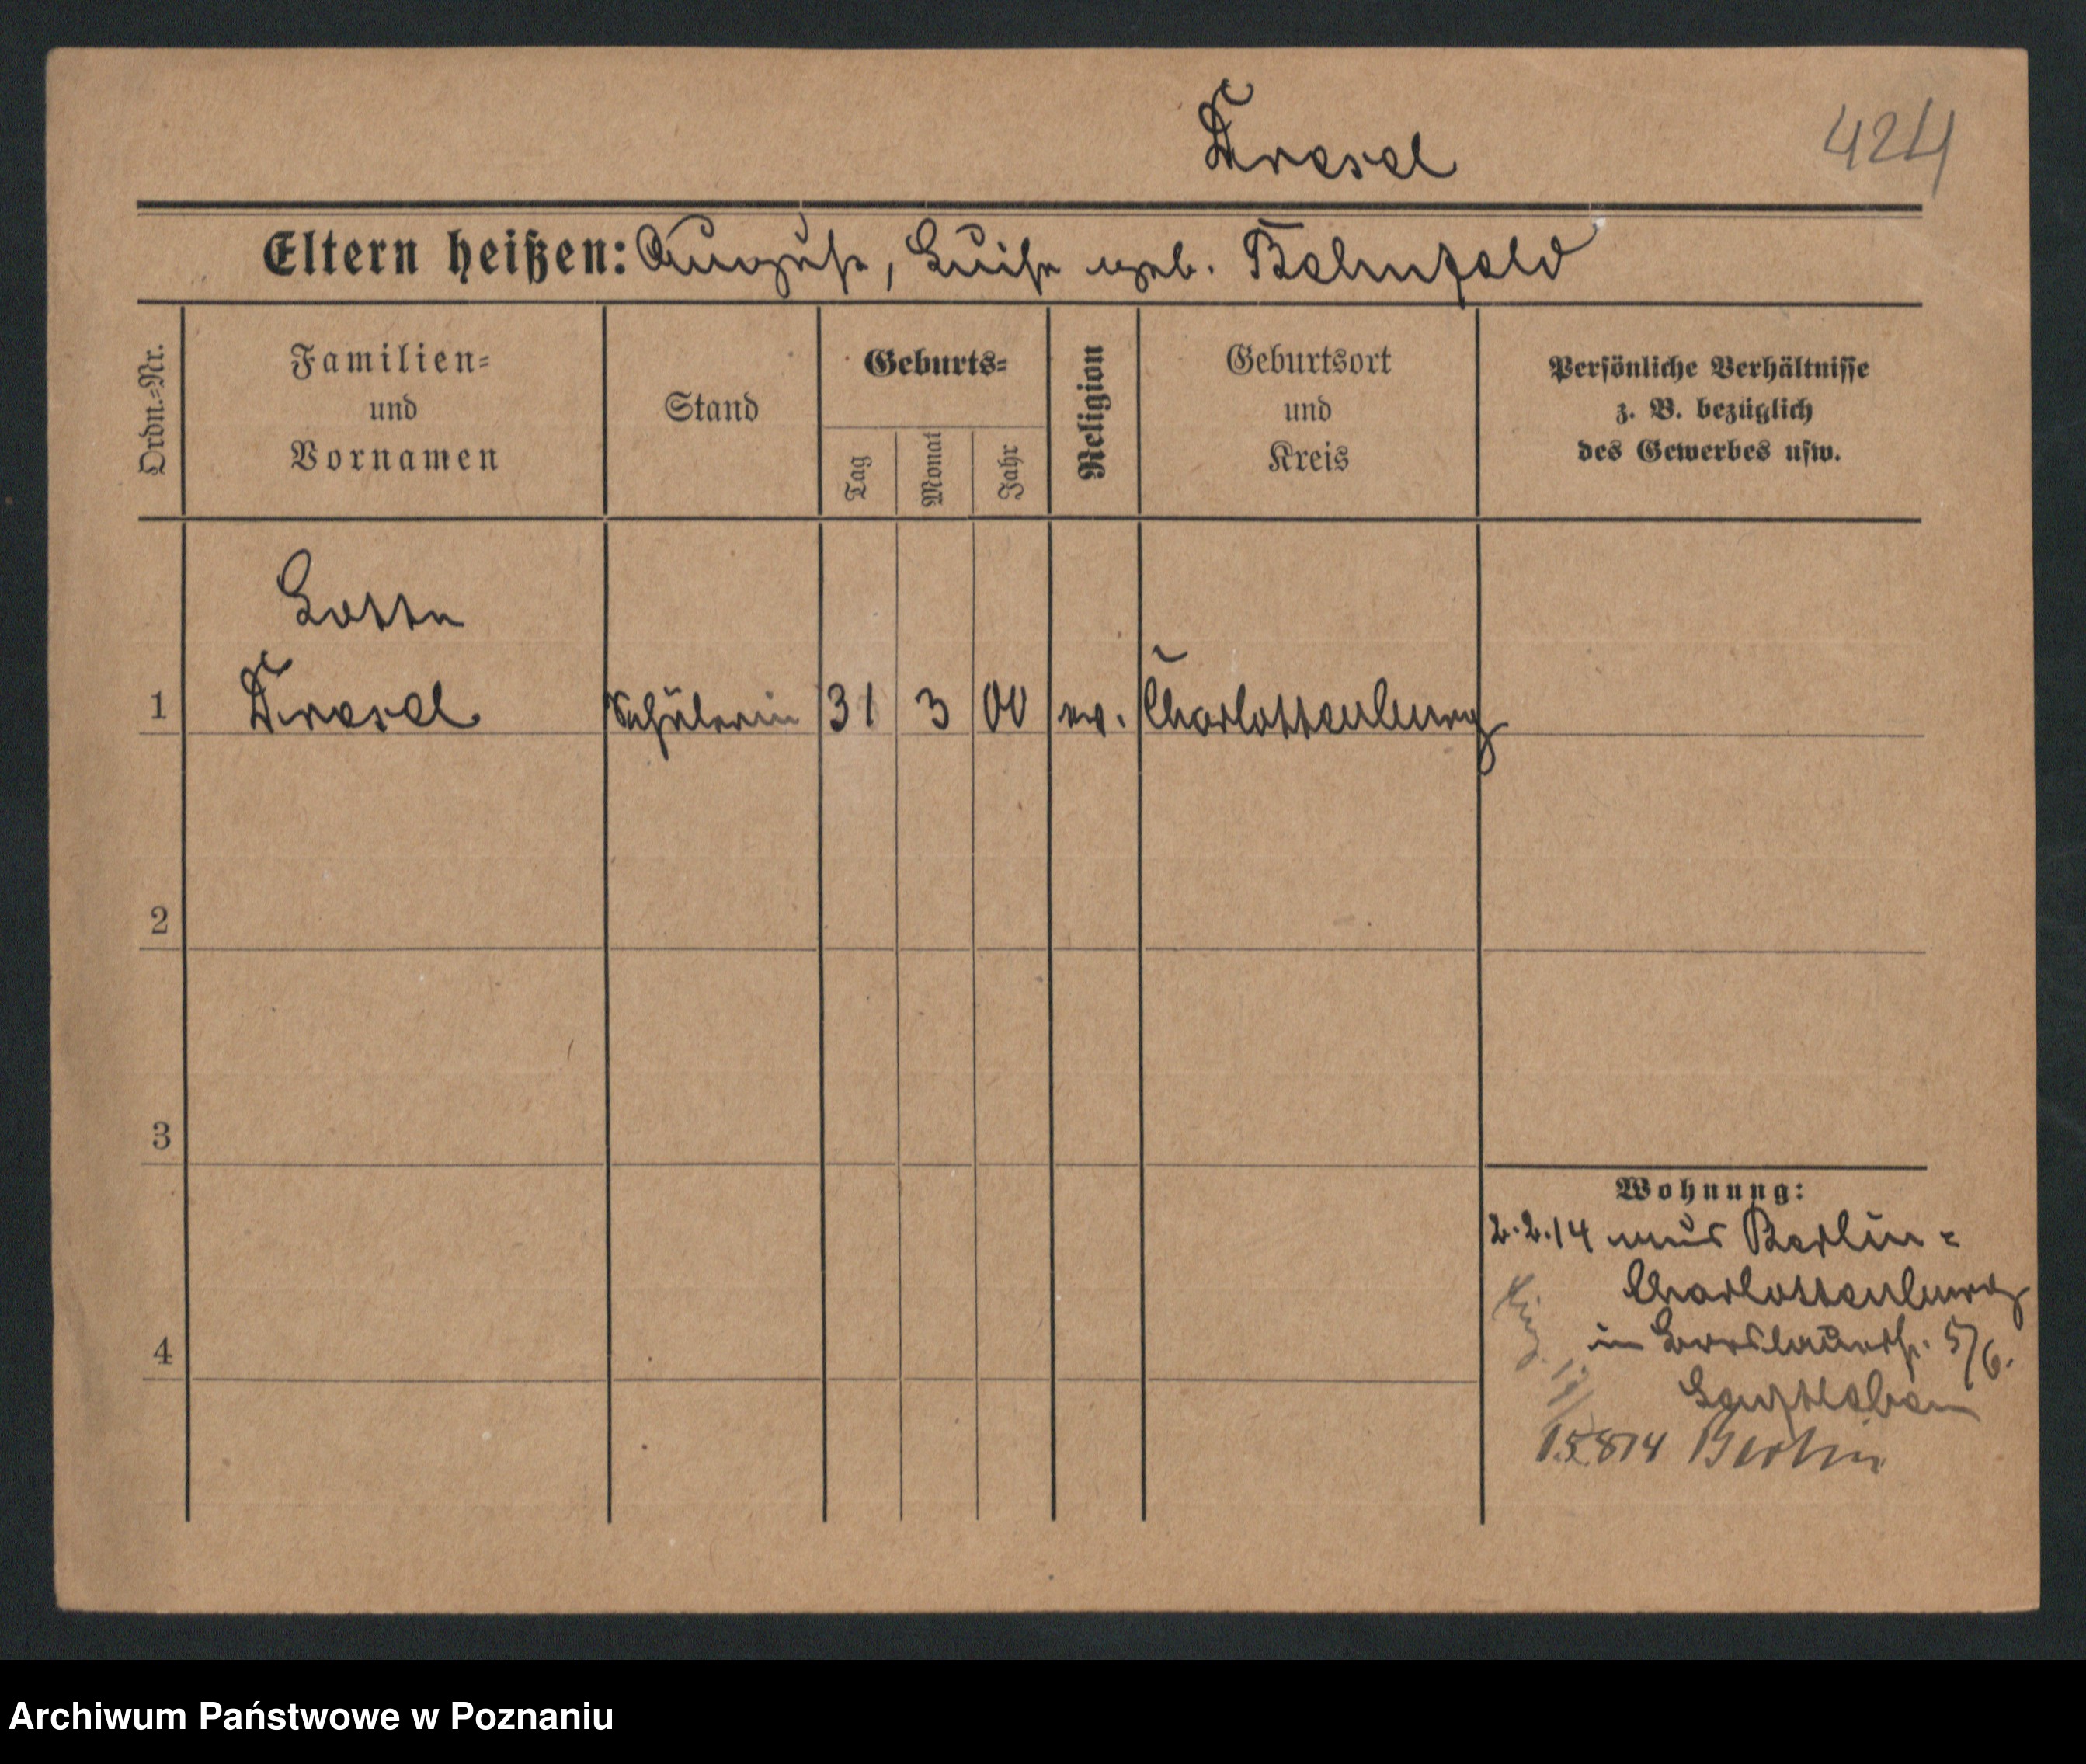 Dresel
424
Eltern heißen: August, Luise geb. Behnfeld
Ordn.-Nr.
Familien-
und
Vornamen
Stand
Geburts-
Tag
Monat
Jahr
Religion
Geburtsort
und
Kreis
Persönliche Verhältnisse
z. B. bezüglich
des Gewerbes usw.
Lotte
1 Dresel Schülerin 31 3 00 ev. Charlottenburg
2
3
4
Wohnung:
2.2.14 aus Berlin-
Charlottenburg
in 5/6.
15 8 14 Berlin
Archiwum Państwowe w Poznaniu